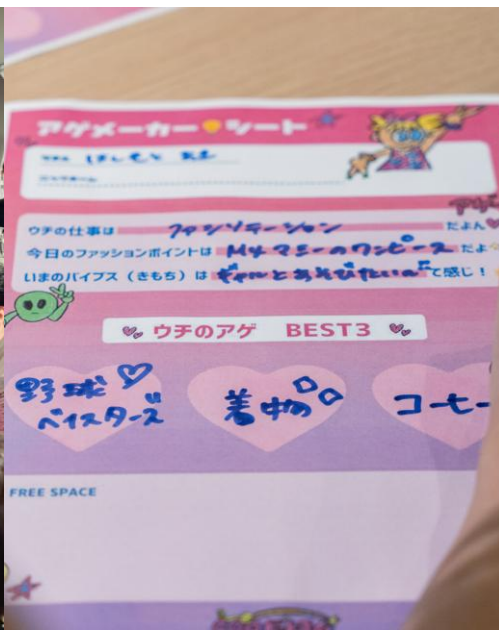 アゲメーカーシート
ウチの仕事は ファシリテーション だよん
今日のファッションポイントは Myマミーのワンピース だよ
いまのバイブス(きもち)は ギャルとあそびたいんじゃ て感じ!
ウチのアゲ BEST3
野球♡
ベイスターズ
着物
コーヒー
FREE SPACE